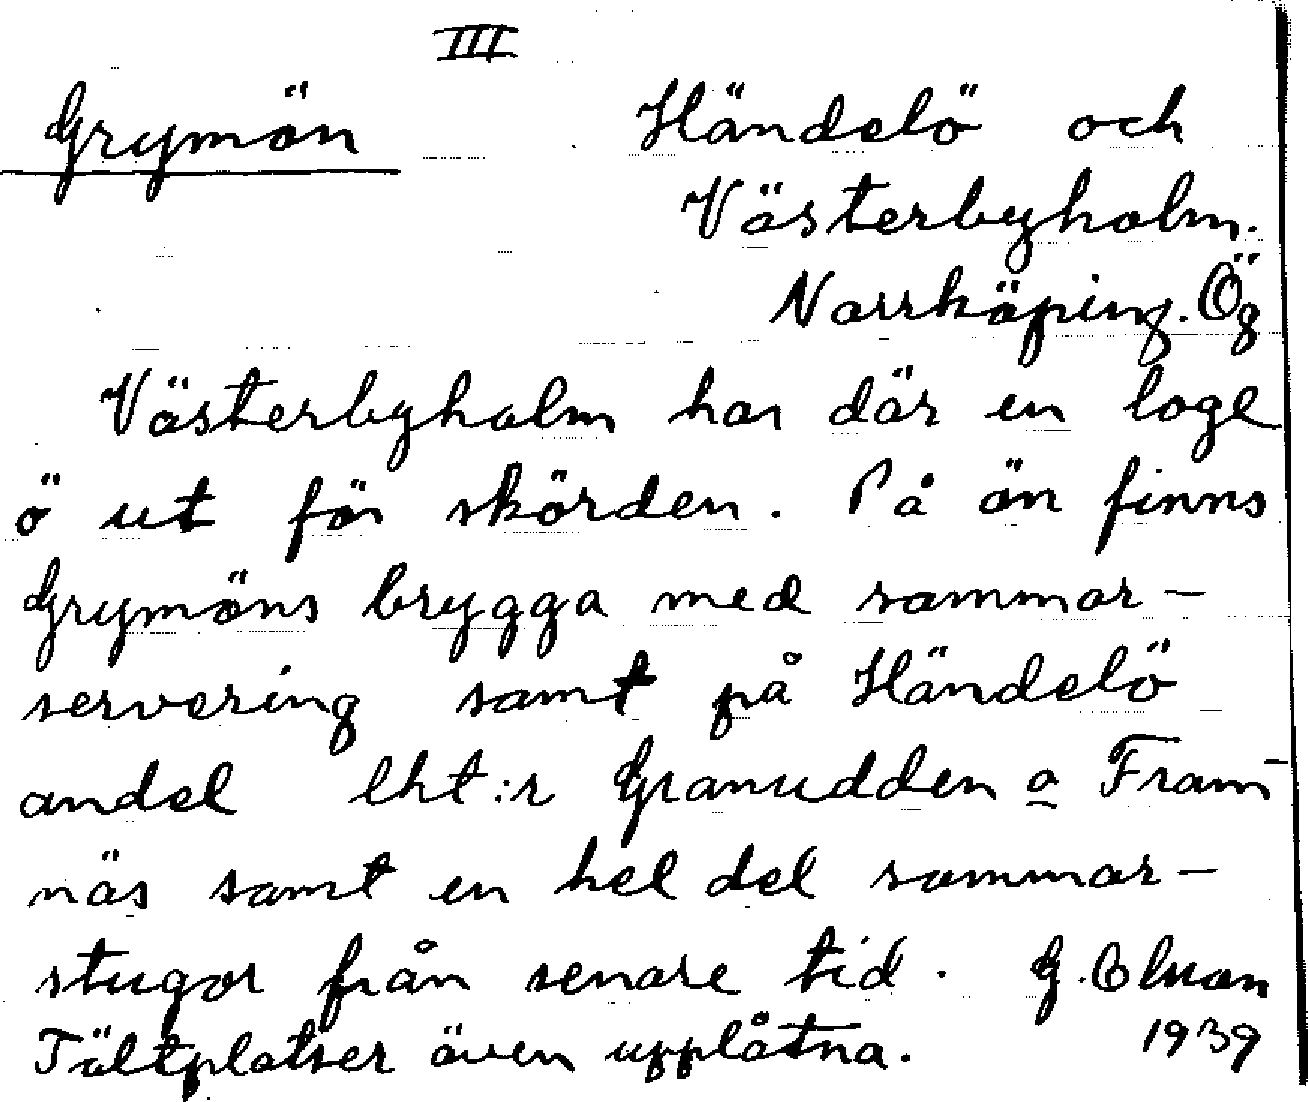 III
Grymön Händelö och
Västerbyholm.
Norrköping. Ög
Västerbyholm har där en loge
ö ut för skörden. På ön finns
Grymöns brygga med sommar-
servering samt på Händelö
andel lht:r Granudden o Fram-
näs samt en hel del sommar-
stugor från senare tid. G.
Tältplatser även upplåtna. 1939